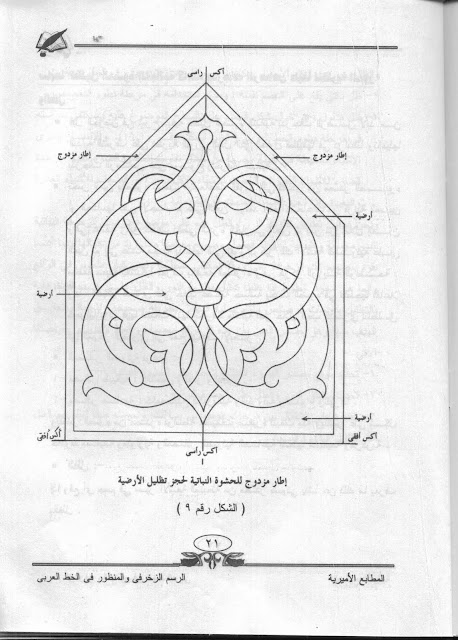 أكس راسى
إطار مزدوج
إطار مزدوج
أرضية
أرضية
أرضية
أكس أفقى
أكس أفقى
أكس راسى
إطار مزدوج للحشوة النباتية لحجز تظليل الأرضية
( الشكل رقم ٩ )
٢١
المطابع الأميرية
الرسم الزخرفى والمنظور فى الخط العربى